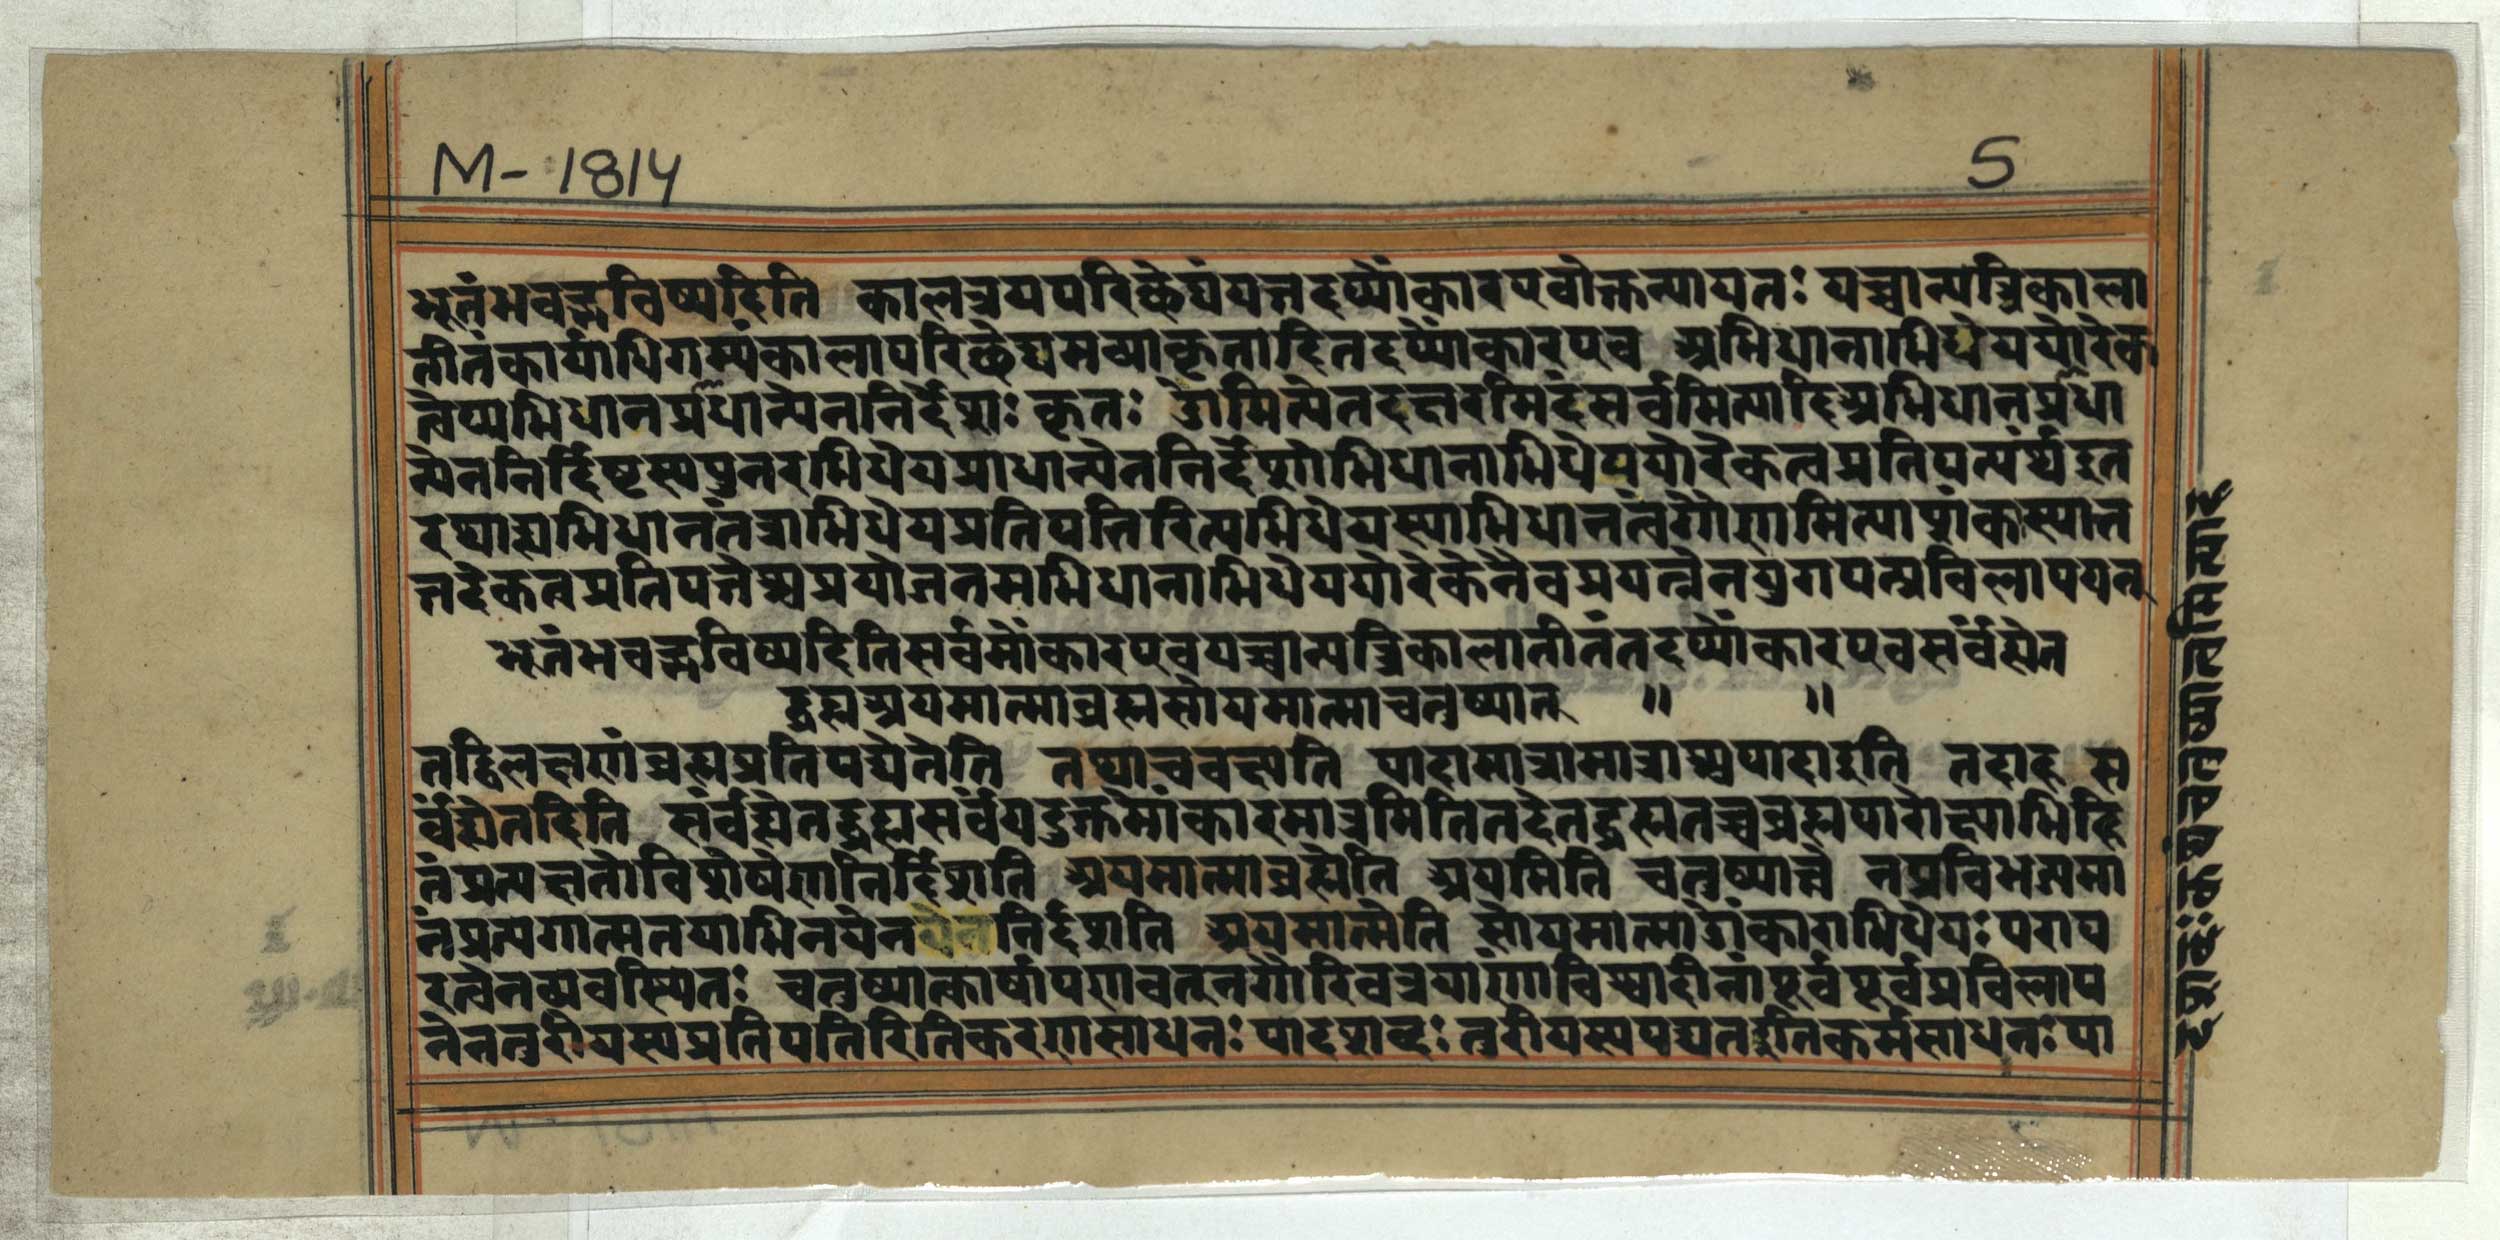 M-1814
5
भूतंभवद्भविष्यदिति कालत्रयपरिछेद्यंयत्तदप्योंकारएवोक्तन्यायतः यच्चान्यत्त्रिकाला
तीतंकार्याधिगम्यंकालापरिछेद्यमव्याकृतादितदप्योंकारएव अभिधानाभिधेययोरेक
त्वेप्यभिधानप्रधान्येननिर्देशः कृतः ओमित्येतदक्षरमिदंसर्वमित्यादिअभिधानप्रधा
न्येननिर्दिष्टस्यपुनरभिधेयप्राधान्येननिर्देशोभिधानाभिधेययोरेकत्वप्रतिपत्यर्थंइत
रथाह्यभिधानतंत्राभिधेयप्रतिपत्तिरित्यभिधेयस्याभिधानत्वंगौणमित्याशंकास्यात्त
त्तदेकत्वप्रतिपत्तेश्चप्रयोजनमभिधानाभिधेययोरेकेनैवप्रयत्नेनयुगपत्प्रविलापयन्
भूतंभवद्भविष्यदितिसर्वमोंकारएवयच्चान्यत्त्रिकालातीतंतदप्योंकारएवसर्वंह्येत
द्ब्रह्मअयमात्माब्रह्मसोयमात्माचतुष्पात् ॥ ॥
तद्विलक्षणंब्रह्मप्रतिपद्येतेति तथाचवक्ष्यति पादामात्रामात्राश्चपादाइति तदाह स
र्वंह्येतदिति सर्वंह्येतद्ब्रह्मसर्वंयदुक्तमोंकारमात्रमितितदेतद्ब्रह्मतच्चब्रह्मपारोक्ष्याभिहि
तंप्रत्यक्षतोविशेषेणनिर्दिशति अयमात्माब्रह्मेति अयमिति चतुष्पात्त्वे नप्रविभज्यमा
नंप्रत्यगात्मतयाभिनयेन निर्दिशति अयमात्मेति सोयमात्माओंकाराभिधेयः पराप
रत्वेनव्यवस्थितः चतुष्पात्कार्षापणवन्नगौरिवत्रयाणांविश्वादीनांपूर्वपूर्वप्रविलाप
नेनतुरीयस्यप्रतिपत्तिरितिकरणसाधनः पादशब्दः तुरीयस्यपद्यतइतिकर्मसाधनः पा